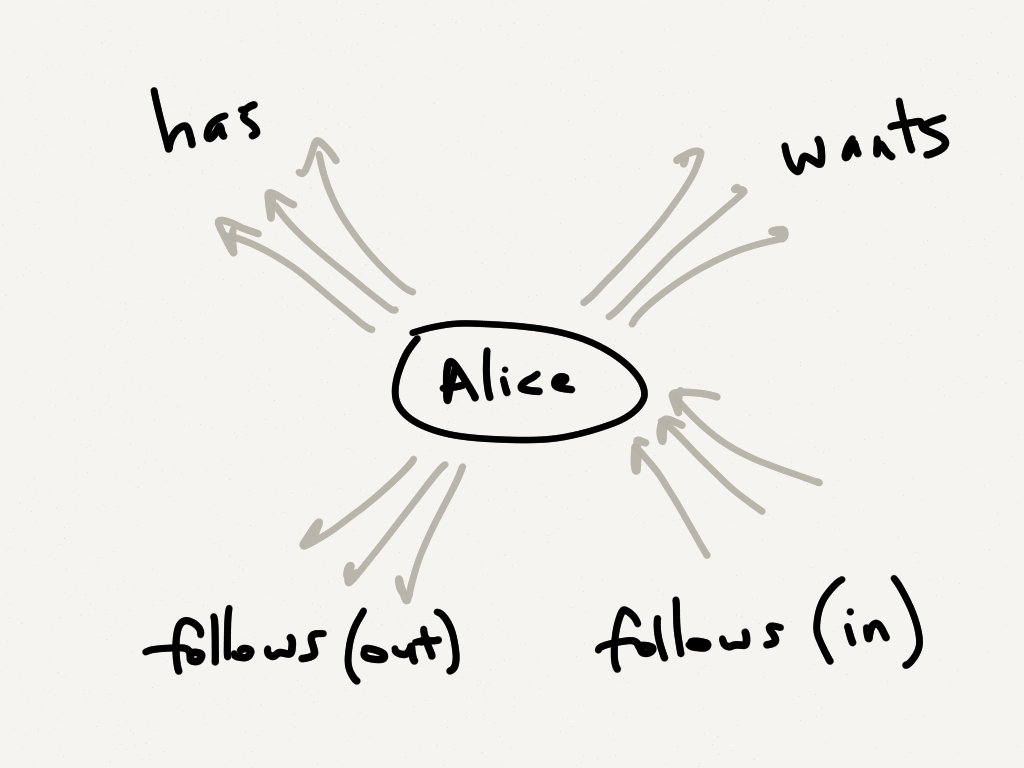 has
wants
Alice
follows (out)
follows (in)